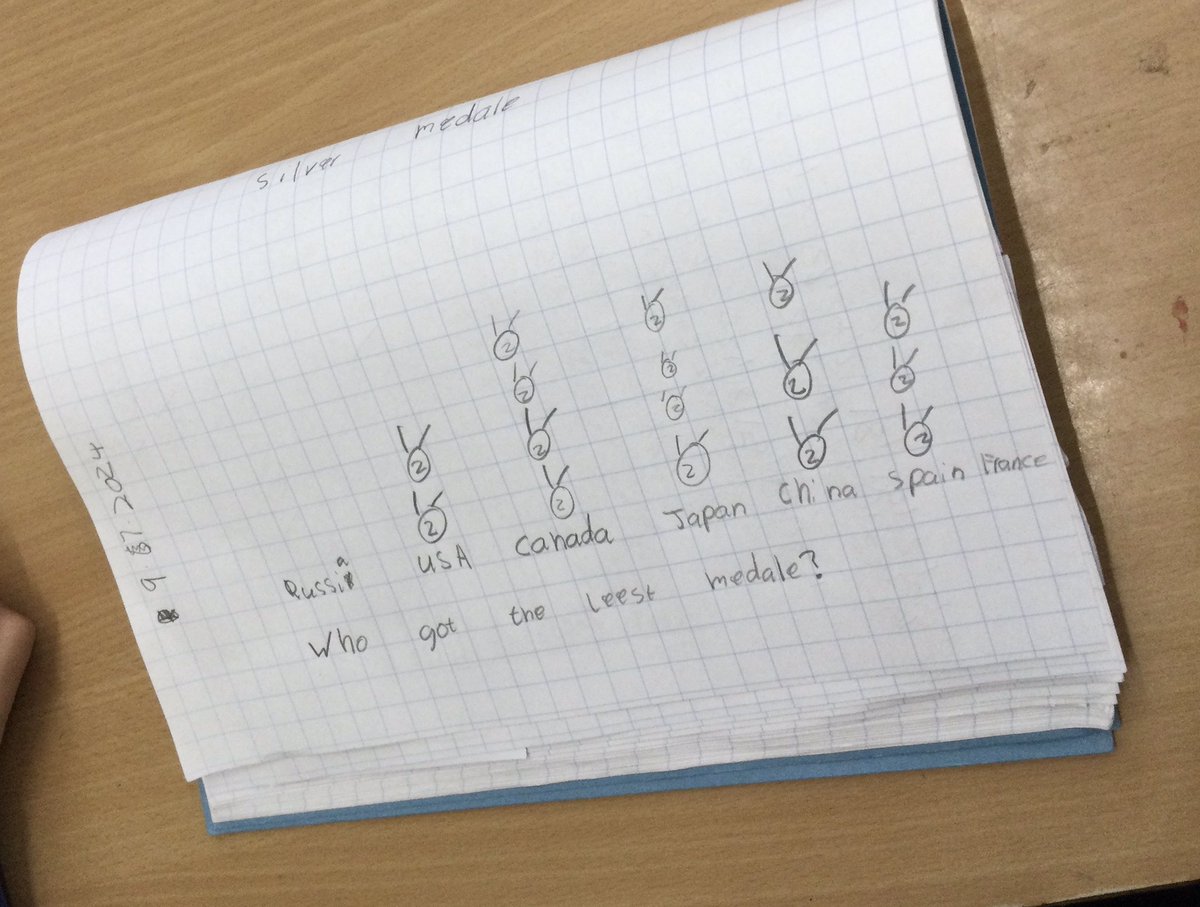 silver medale
2024
2 2
2 2 2 2
2 2 2 2 2
2 2 2 2 2
Russia USA Canada Japan China Spain France
Who got the leest medale?